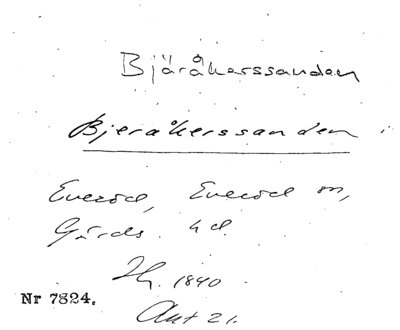 Bjäråkerssanden
Bjeråkerssanden
Everöd, Everöd sn,
Gärds hd.
Hg. 1840
Nr 7824.
Akt 21.